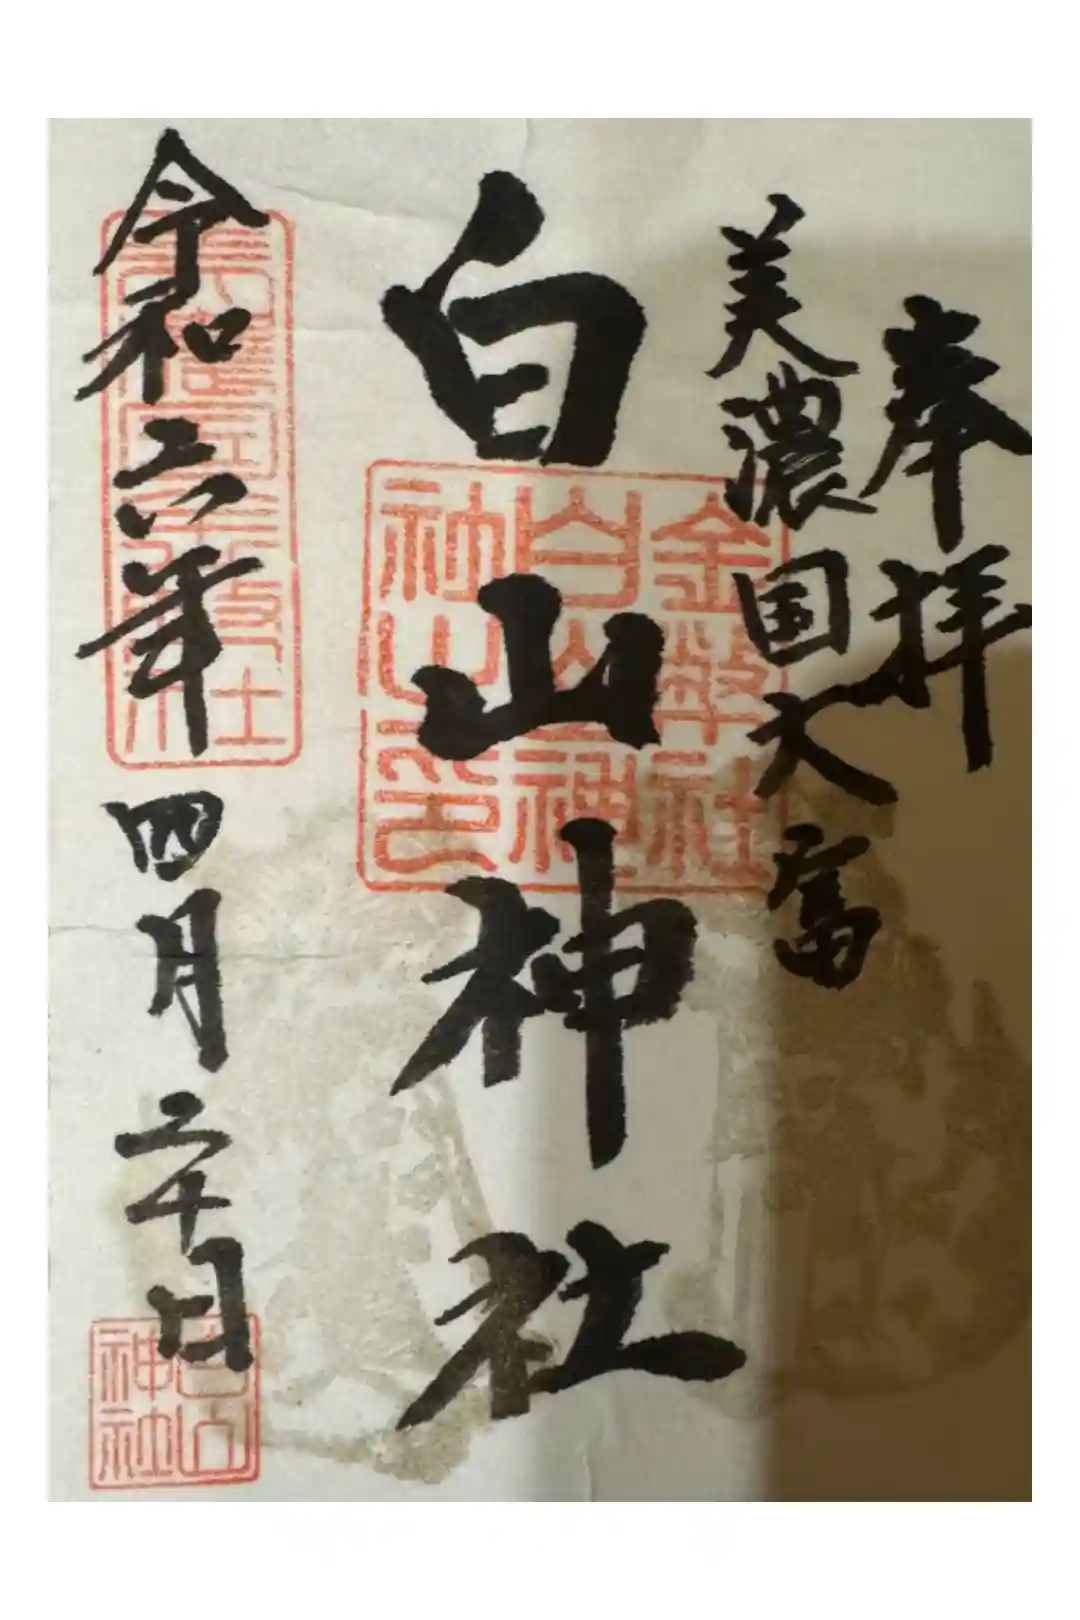 奉拝
美濃国大富
白山神社
令和六年四月二十日
金幣社
白山神
社山印
白山
神社